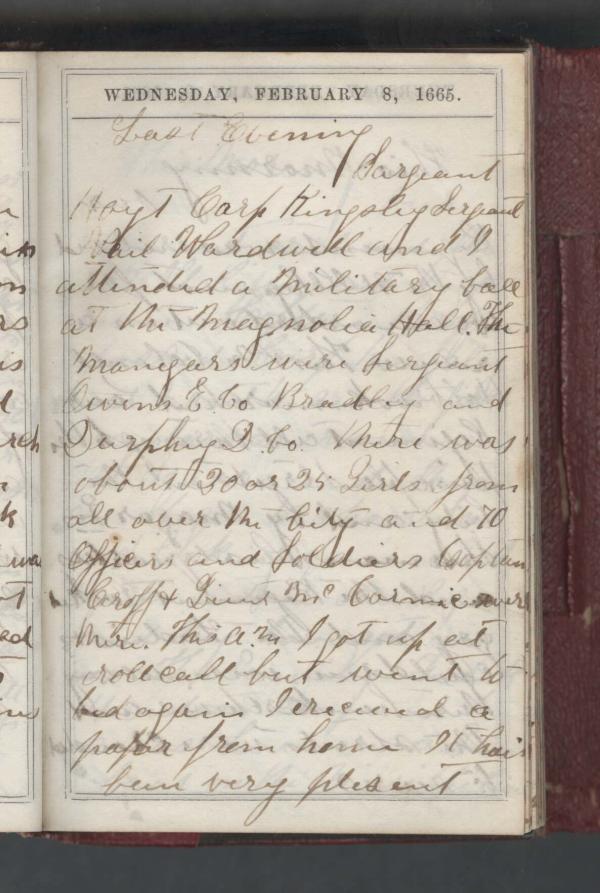 WEDNESDAY, FEBRUARY 8, 1665.
Last Evening
Sargeant
Hoyt Corp Kingsley Sergeant
Vail Wardwell and I
attended a Military ball
at the Magnolia Hall. The
Mangers were Sergeant
Owens E. Co Bradley and
Durphy D. Co. There was
about 20 or 25 Girls from
all over the City and 70
Officers and Soldiers Captain
& Lieut Mc Cormic were
there. This A.m I got up at
rollcall but went to
bed again I recieved a
papar from home It has
been very plesent